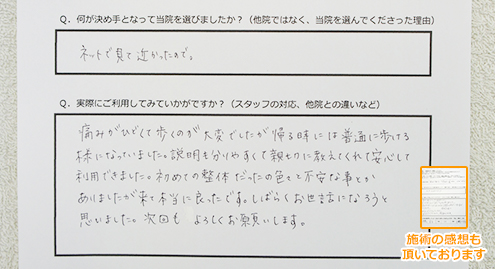 Q. 何が決め手となって当院を選びましたか？（他院ではなく、当院を選んでくださった理由）
ネットで見て近かったので。
Q. 実際にご利用してみていかがですか？（スタッフの対応、他院との違いなど）
痛みがひどくて歩くのが大変でしたが帰る時には普通に歩ける
様になっていました。説明も分りやすくて親切に教えてくれて安心して
利用できました。初めての整体だったの色々と不安な事とか
ありましたが来て本当に良ったです。しばらくお世話になろうと
思いました。次回も よろしくお願いします。
施術の感想も
頂いております